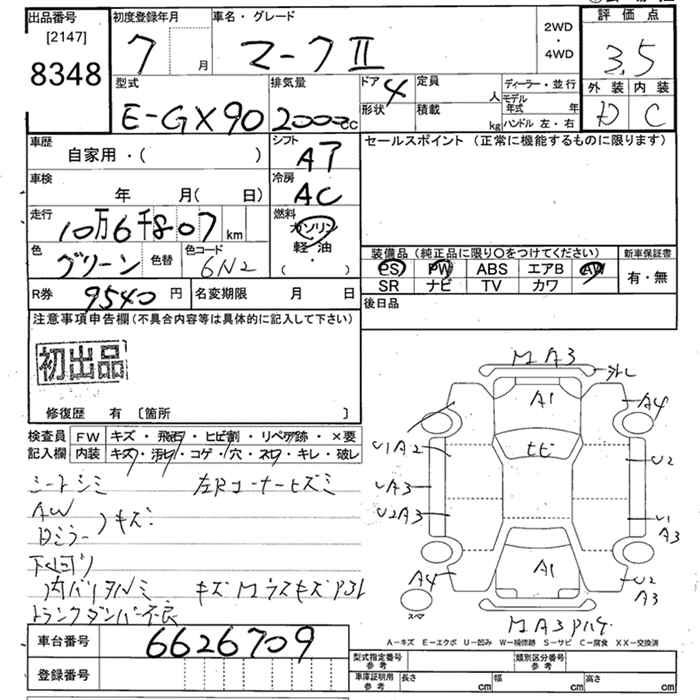 出品番号 初度登録年月 車名・グレード 評価点
[2147] 7 月 マークII 2WD・4WD 3.5
8348
外装 内装
D C
型式 排気量 ドア 4 定員 人 ディーラー・並行
E-GX90 2000cc 形状 積載 kg モデル年式 年
ハンドル 左・右
車歴 シフト セールスポイント (正常に機能するものに限ります)
自家用・( ) AT
車検 冷房
年 月( 日) AC
走行 燃料
10万6千807 km ガソリン
軽・油
( )
色 グリーン 色替 色コード 6N2
装備品 (純正品に限り〇をつけてください) 新車保証書
PS PW ABS エアB AW 有・無
SR ナビ TV カワ
R券 9540 円 名変期限 月 日
後日品
注意事項申告欄(不具合内容等は具体的に記入して下さい)
初出品
修復歴 有 [箇所 ]
検査員 FW キズ・飛石・ヒビ割・リペア跡・×要
記入欄 内装 キズ・汚れ・コゲ・穴・ネジ・キレ・破レ
シートシミ 左Rコーナーヒズミ
AW
Dミラー )キズ
下回り
トランクダンパー不良
MA3
外し
A1
A4
ヒビ
U1A2
U2
UA3
U2A3
U1
A3
A4
A1
U2
A3
スペア
MA3
A-キズ E-エクボ U-凹み W-補修跡 S-サビ C-腐食 XX-交換済
車台番号 6626709
登録番号
型式指定番号 参考 類別区分番号 参考
車庫証明用 参考 長さ cm 幅 cm 高さ cm